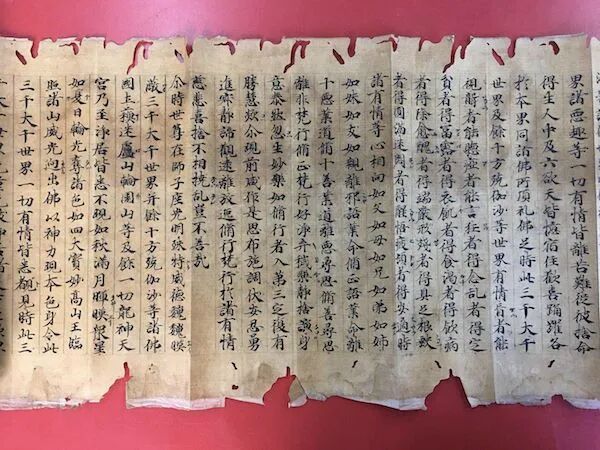 界諸惡趣等一切有情皆離苦難從彼捨命
得生人中及六欲天皆憶宿住歡喜踊躍各
於本界同詣佛所頂礼佛足時此三千大千
世界及餘十方殑伽沙等世界有情盲者能
視聾者能聽瘂者能言狂者得念亂者得定
貧者得富露者得衣飢者得食渴者得飲病
者得除愈醜者得端嚴形殘者得具足根缺
者得圓滿迷悶者得醒悟疲頓者得安適時
諸有情等心相向如父如母如兄如弟如姊
如妹如友如親離邪語業命修正語業命離
十惡業道修十善業道離惡尋思修善尋思
離非梵行修正梵行好淨弃穢樂静捨諠身
意泰然忽生妙樂如修行者入第三定復有
勝慧欻尒現前咸作是思布施調伏安忍勇
進寂静諦觀遠離放逸修行梵行於諸有情
慈悲喜捨不相撓亂豈不善哉
尒時世尊在師子座光明殊特威德巍巍暎
蔽三千大千世界并餘十方殑伽沙等諸佛
國土蘇迷盧山輪圍山等及餘一切龍神天
宮乃至淨居皆悉不現如秋滿月暉暎眾星
如夏日輪光奪諸色如四大寶妙高山王臨
照諸山威光迥出佛以神力現本色身令此
三千大千世界一切有情皆悉覩見時此三